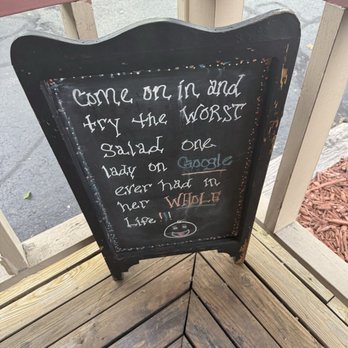 Come on in and
try the WORST
Salad one
lady on Google
ever had in
her WHOLE
Life!!!